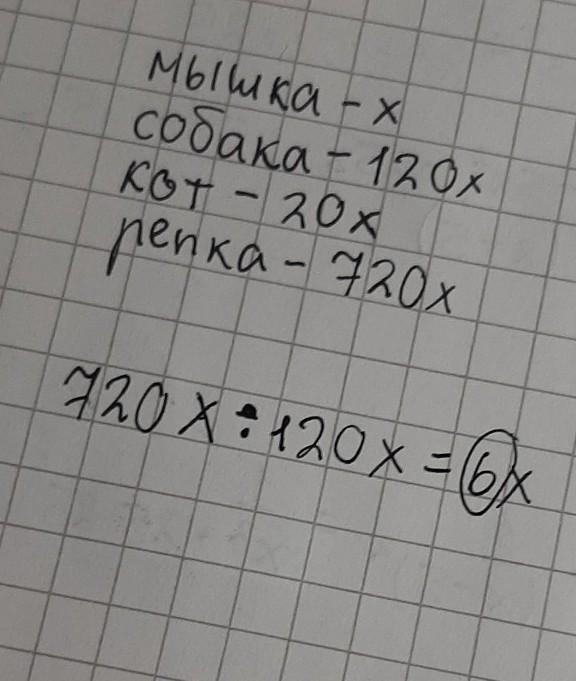 мышка - х
собака - 120х
кот - 20х
репка - 720х
720х : 120х = 6х